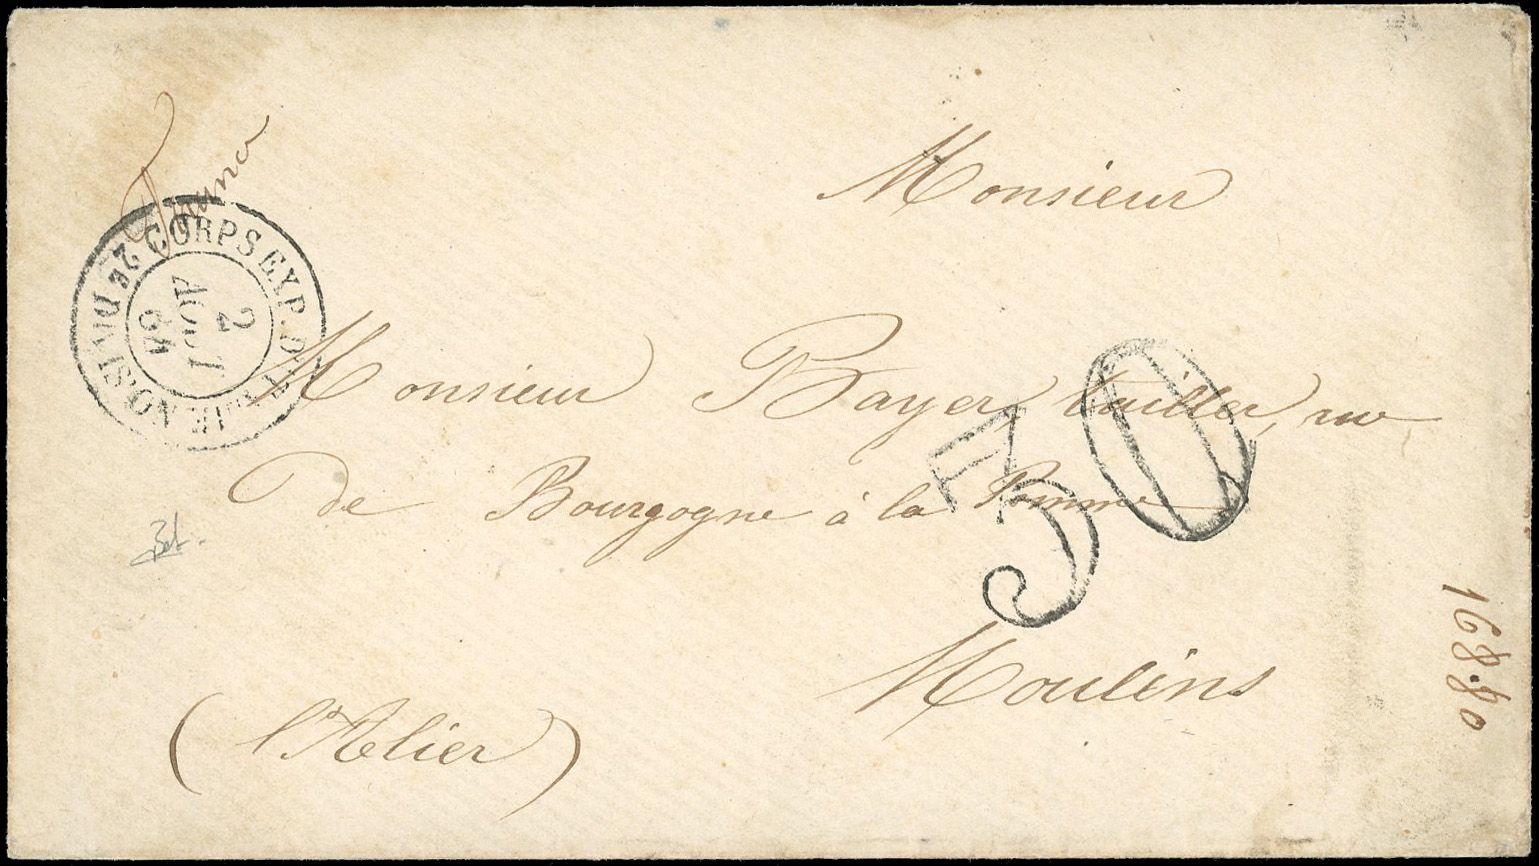 France
CORPS EXP. D'
2e DIVISION
2
AOUT
Monsieur
Monsieur Bayer, tailler, rue
de Bourgogne à la Pomme
30
Moulins
(l'Alier)
168.80